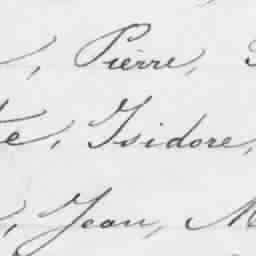 , Pierre,
te, Isidore,
, Jean, M